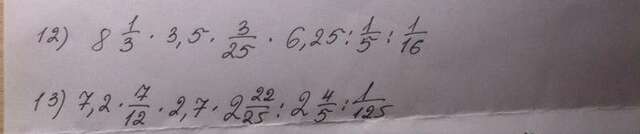 12) 8 1/3 · 3,5 · 3/25 · 6,25 : 1/5 : 1/16
13) 7,2 · 7/12 · 2,7 · 2 22/25 : 2 4/5 : 1/125